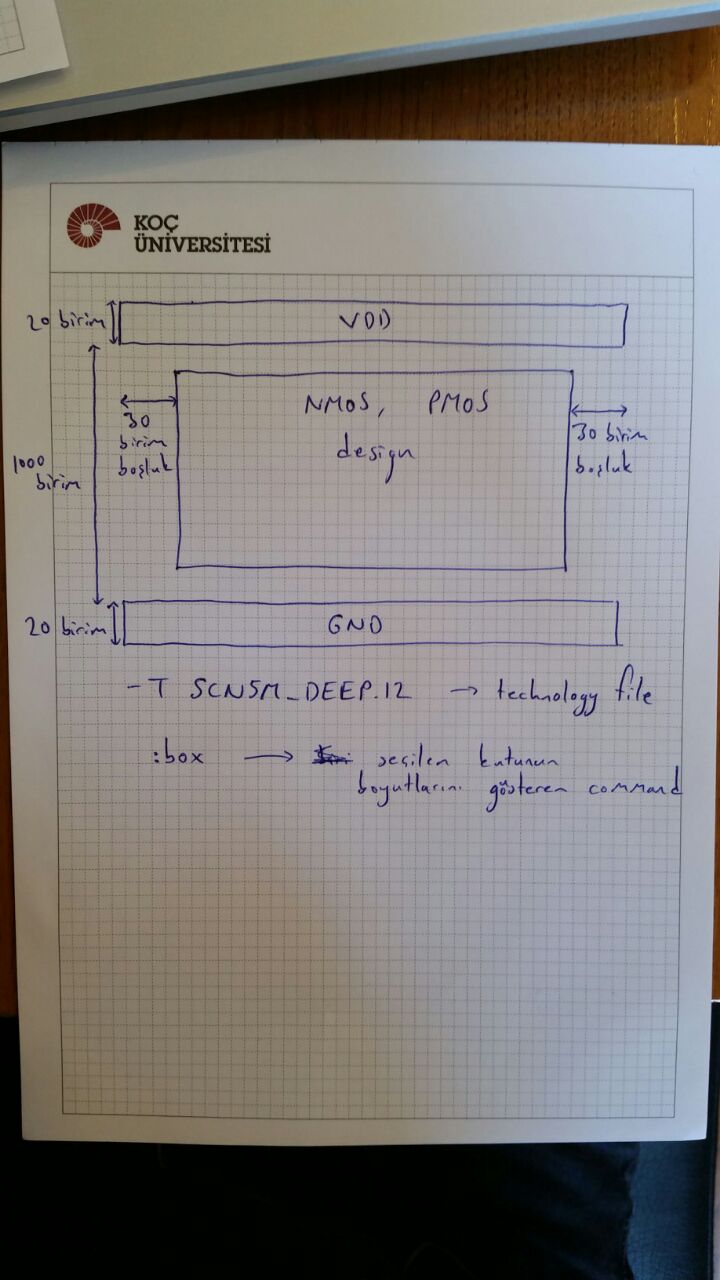 KOÇ
ÜNİVERSİTESİ
20 birim
VDD
30
birim
boşluk
NMOS, PMOS
design
30 birim
boşluk
1000
birim
20 birim
GND
-T SCN5M_DEEP.12 → technology file
:box → seçilen kutunun
boyutlarını gösteren command